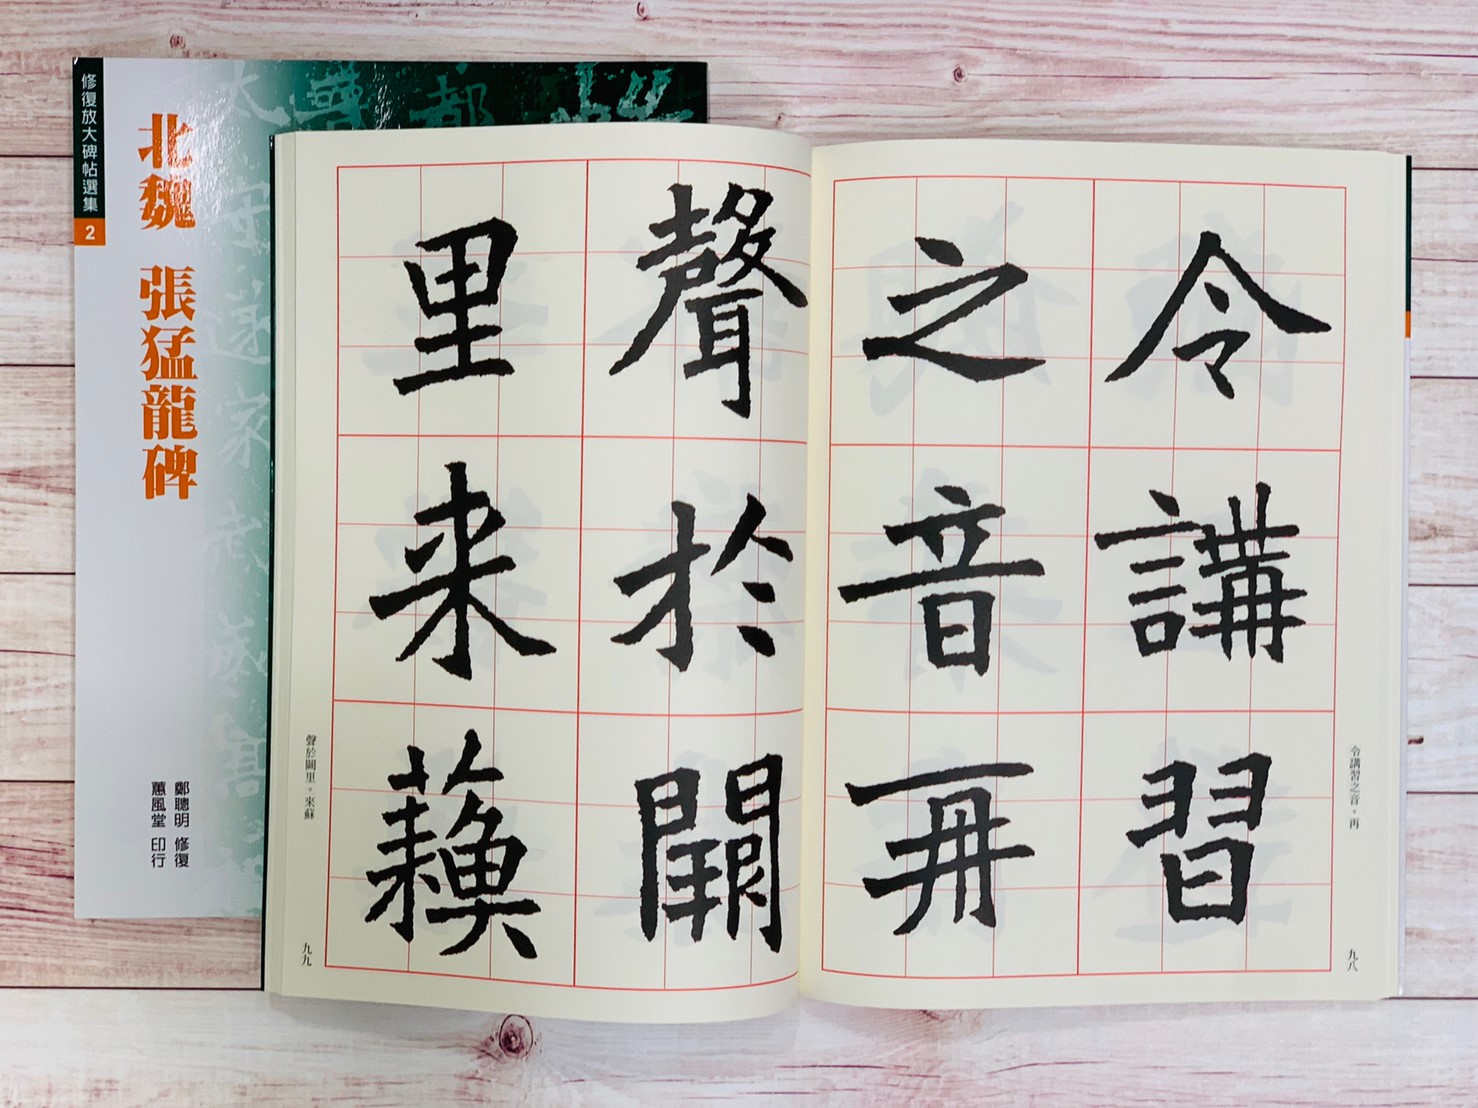 修復放大碑帖選集
2
北魏 張猛龍碑
鄭聰明 修復
蕙風堂 印行
令講習
之音再
令講習之音。再
九八
聲於闕
里来蘇
聲於闕里。來蘇
九九